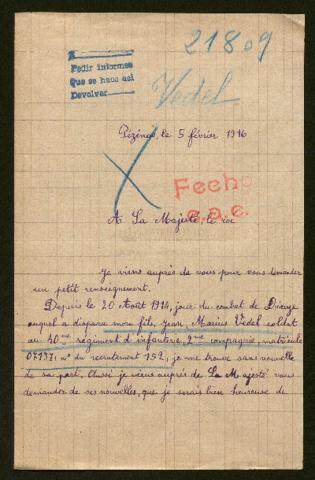 21809
Pedir informes
Que se haga asi
Devolver
Vedel
Pézénas, le 5 février 1916
Fecho
A Sa Majesté, le roi
Je viens auprès de vous pour vous demander
un petit renseignement.
Depuis le 20 Août 1914, jour du combat de Dieuze
auquel a disparu mon fils, Jean, Marius Vedel soldat
au 40me régiment d'infanterie, 2me compagnie, matricule
07197, n° du recrutement 152, je me trouve sans nouvelle
de sa part. Aussi je viens auprès de Sa Majesté vous
demander de ses nouvelles, que je serais bien heureuse de